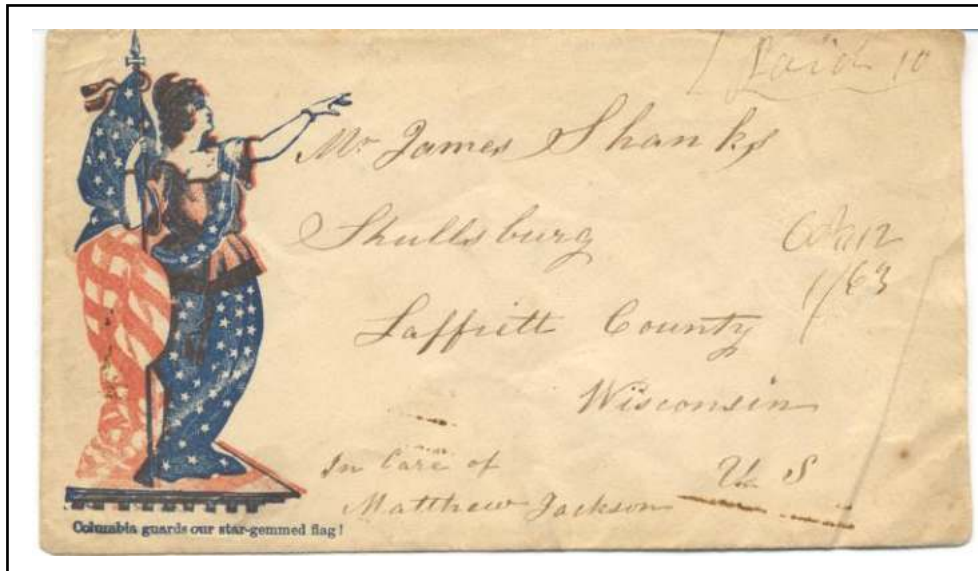 Paid 10
Mr James Shanks
Shullsburg
Laffiett County
Wisconsin
U. S
In Care of
Matthew Jackson
1/63
Columbia guards our star-gemmed flag!